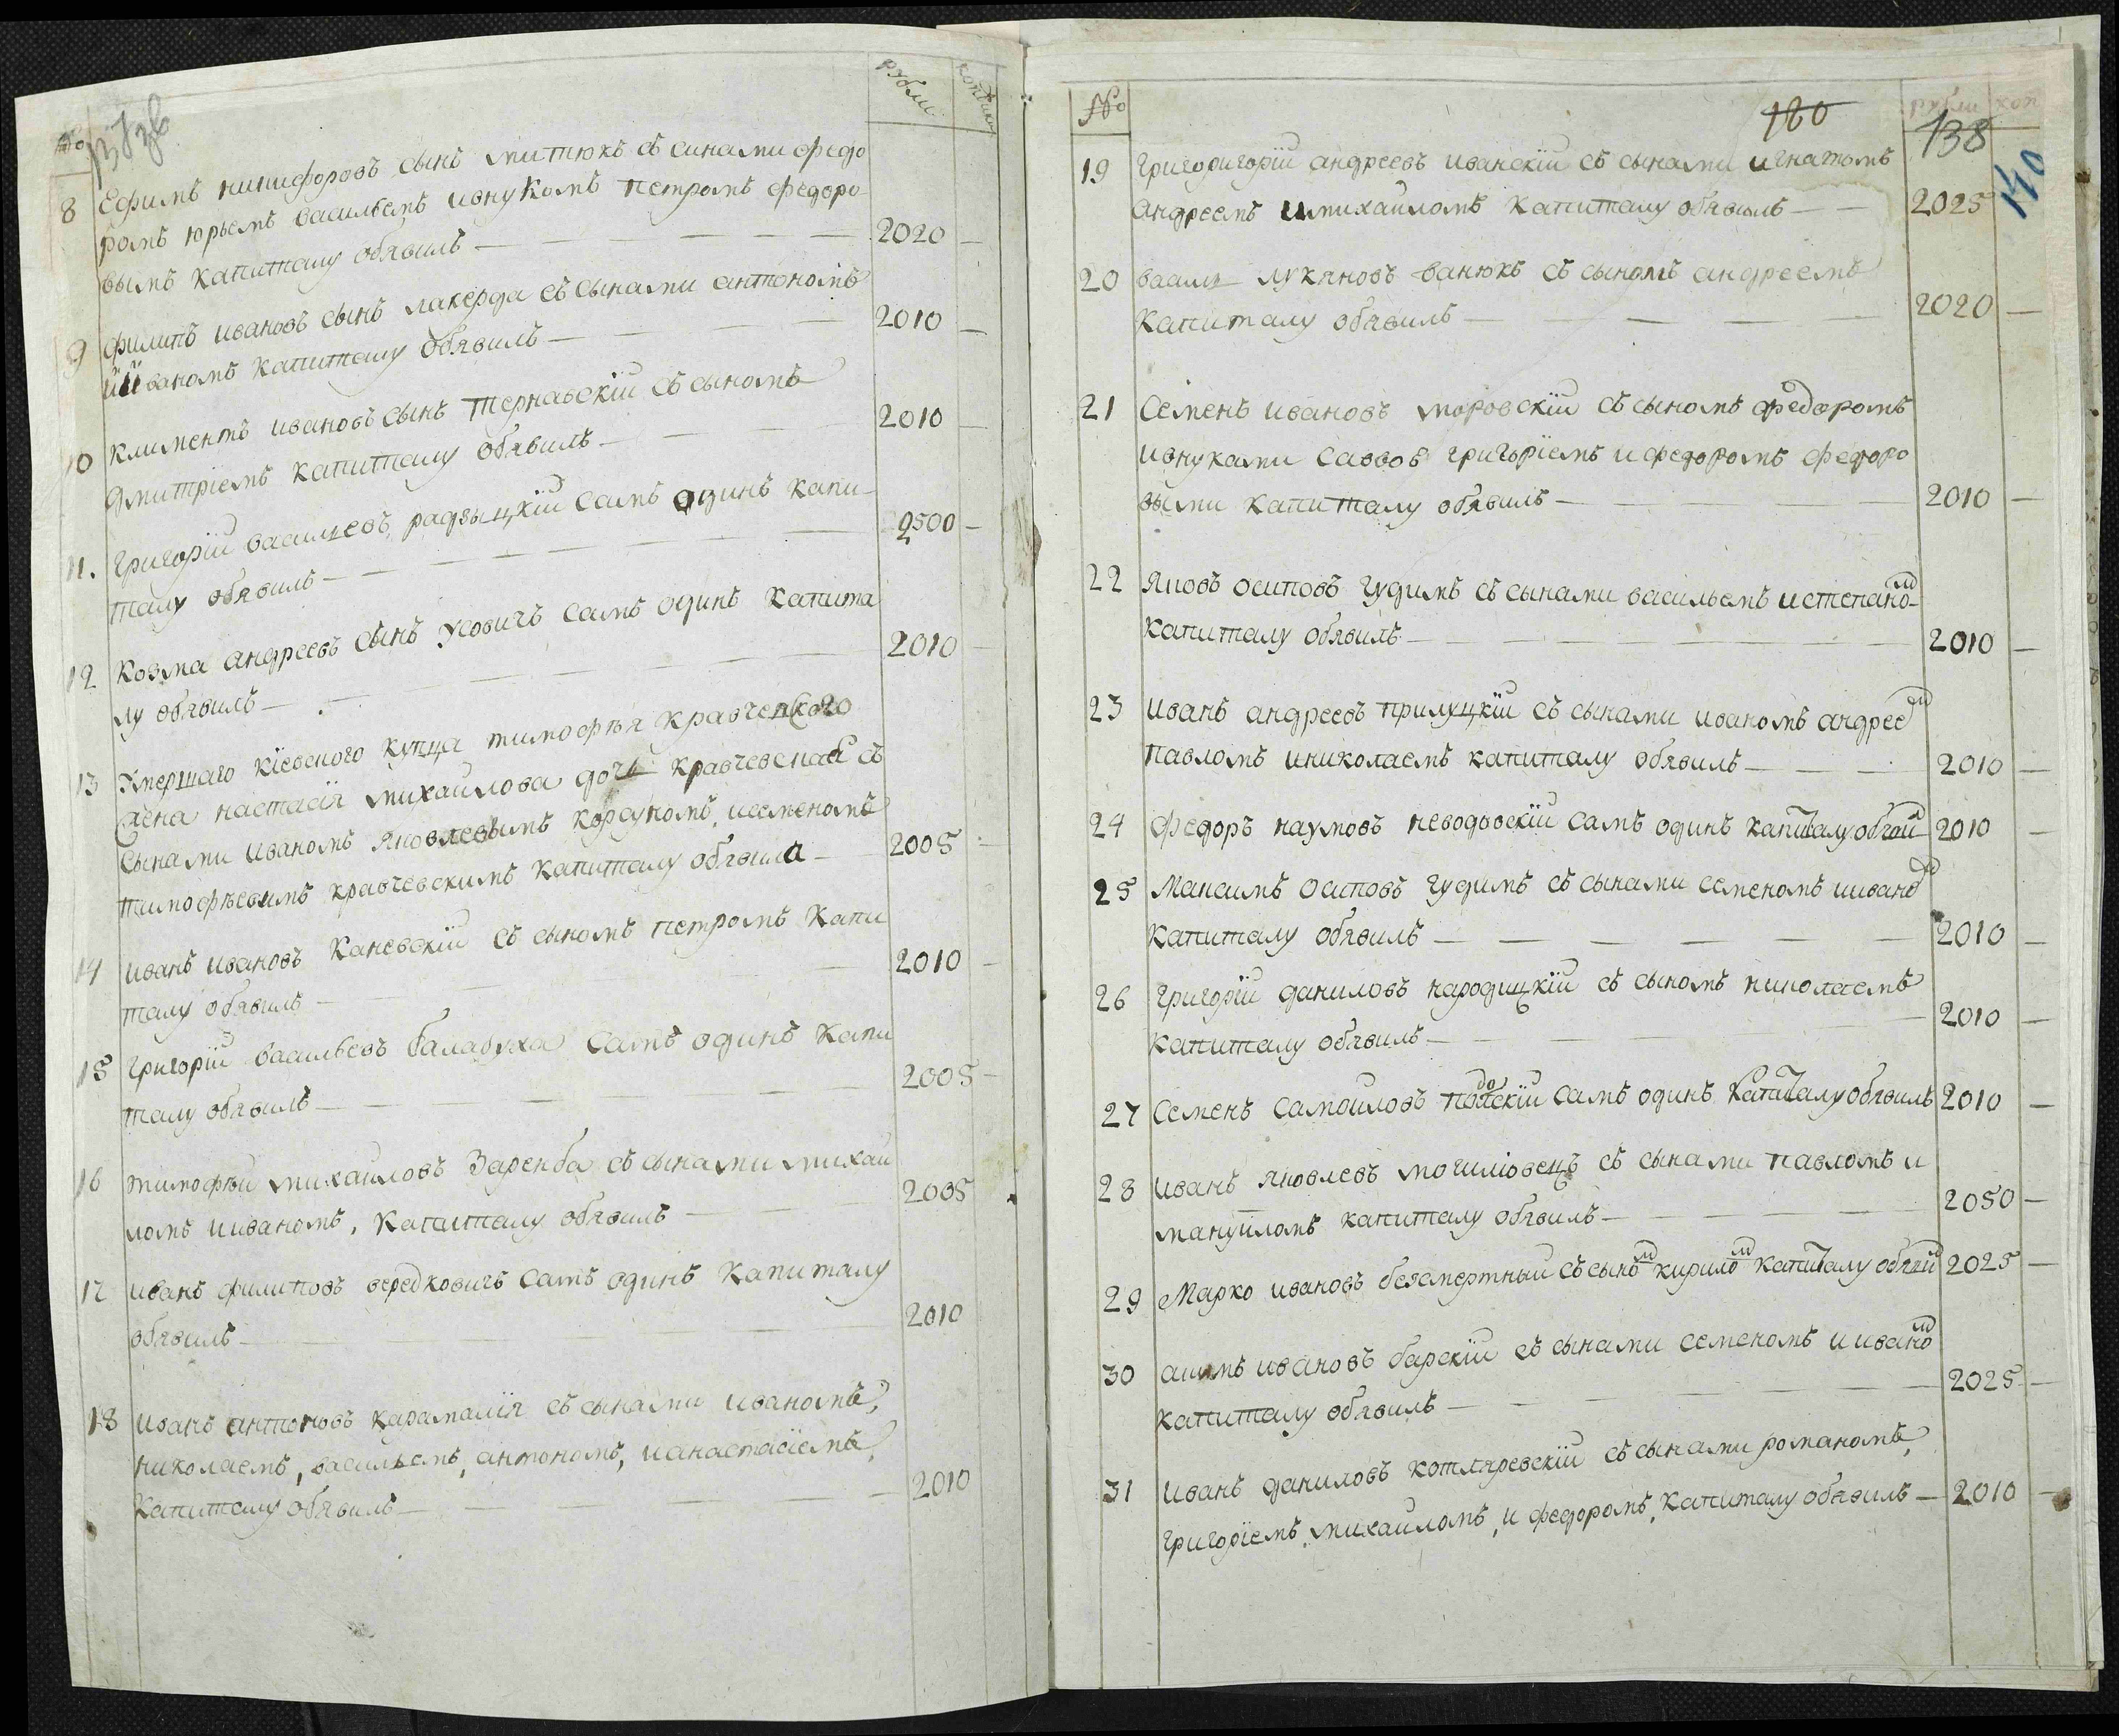 № рубли копѣики
8 Ефимъ никифоровъ сынъ митюкъ съ синами федо
ромъ юрьемъ васильемъ ивнукомъ петромъ федоро
вымъ капиталу обявилъ — 2020 —
9 филипъ ивановъ сынъ лакерда съ сынами антономъ
ииваномъ капиталу обявилъ — 2010 —
10 климентъ ивановъ сынъ тернавскїи съ сыномъ
дмитрїемъ капиталу обявилъ — 2010 —
11. григорїи васильевъ радзыцкїи самъ одинъ капи
талу обявилъ — 2500 —
12 козма андреевъ сынъ усовичъ самъ одинъ капита
лу обявилъ — 2010 —
13 Умершаго кїевского купца тимофѣя кравченского
жена настасїя михаилова дочь кравчевская съ
сынами иваномъ яковлевымъ корсуномъ, исеменомъ
тимофѣевимъ кравчевскимъ капиталу обявила — 2005 —
14 иванъ ивановъ каневскїи съ сыномъ петромъ капи
талу обявилъ — 2010 —
15 григорїи васильевъ балабуха самъ одинъ капи
талу обявилъ — 2005 —
16 тимофѣи михаиловъ Заренба съ сынами михаи
ломъ ииваномъ, капиталу обявилъ — 2005
17 иванъ филиповъ середковичъ самъ одинъ капиталу
обявилъ — 2010
18 иванъ антоновъ карамалїя съ сынами иваномъ,
николаемъ, васильемъ, антономъ, ианастасїемъ,
капиталу обявилъ — 2010
№ 180 рубли коп
138
140
19 григоригорїи андреевъ иванскїи съ сынами игнатомъ
андреемъ имихаиломъ капиталу обявилъ — 2025
20 василь лукяновъ ванюкъ съ сыномъ андреемъ
капиталу обявилъ — 2020 —
21 Семенъ ивановъ моровскїи съ сыномъ федоромъ
ивнуками саввов григорїемъ и федоромъ федоро
выми капиталу обявилъ — 2010 —
22 Яковъ осиповъ гудимъ съ сынами васильемъ истепаном
капиталу обявилъ — 2010 —
23 иванъ андреевъ прилуцкїи съ сынами иваномъ андреем
павломъ иниколаемъ капиталу обявилъ — 2010 —
24 федоръ наумовъ неводовскїи самъ одинъ капиталу обявил 2010 —
25 Максимъ осиповъ гудимъ съ сынами семеномъ ииваном
капиталу обявилъ — 2010 —
26 григорїи даниловъ народицкїи съ сыномъ николаемъ
капиталу обявилъ — 2010 —
27 Семенъ самоиловъ самъ одинъ капиталу обявилъ 2010 —
28 иванъ яковлевъ могилiовецъ съ сынами павломъ и
мануиломъ капиталу обявилъ — 2050 —
29 Марко ивановъ безсмертныи съ сыном кирилом капиталу обявил 2025 —
30 акимъ ивановъ барскїи съ сынами семеномъ и иваном
капиталу обявилъ — 2025 —
31 иванъ даниловъ котляревскїи съ сынами романомъ,
григорїемъ, михаиломъ, и федоромъ, капиталу обявилъ — 2010 —